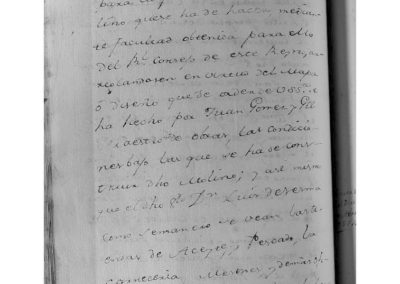 para la
lino que se ha de hacer, median
te facultad obtenida para ello
del Rl. Consejo de este Reyno, ar
reglandose en virtud del Mapa
ó diseño que de orden de USSa. se
ha hecho por Juan Gomez y Gil
Maestro de obras, las condicio
nes bajo las que se ha de cons-
truir dho Molino; y asi mismo
que el dho Sr. Dn. Luis de
como se mando se vean las ti
endas de Aceyte, y Pescado, la
Carniceria Mesones, y demas